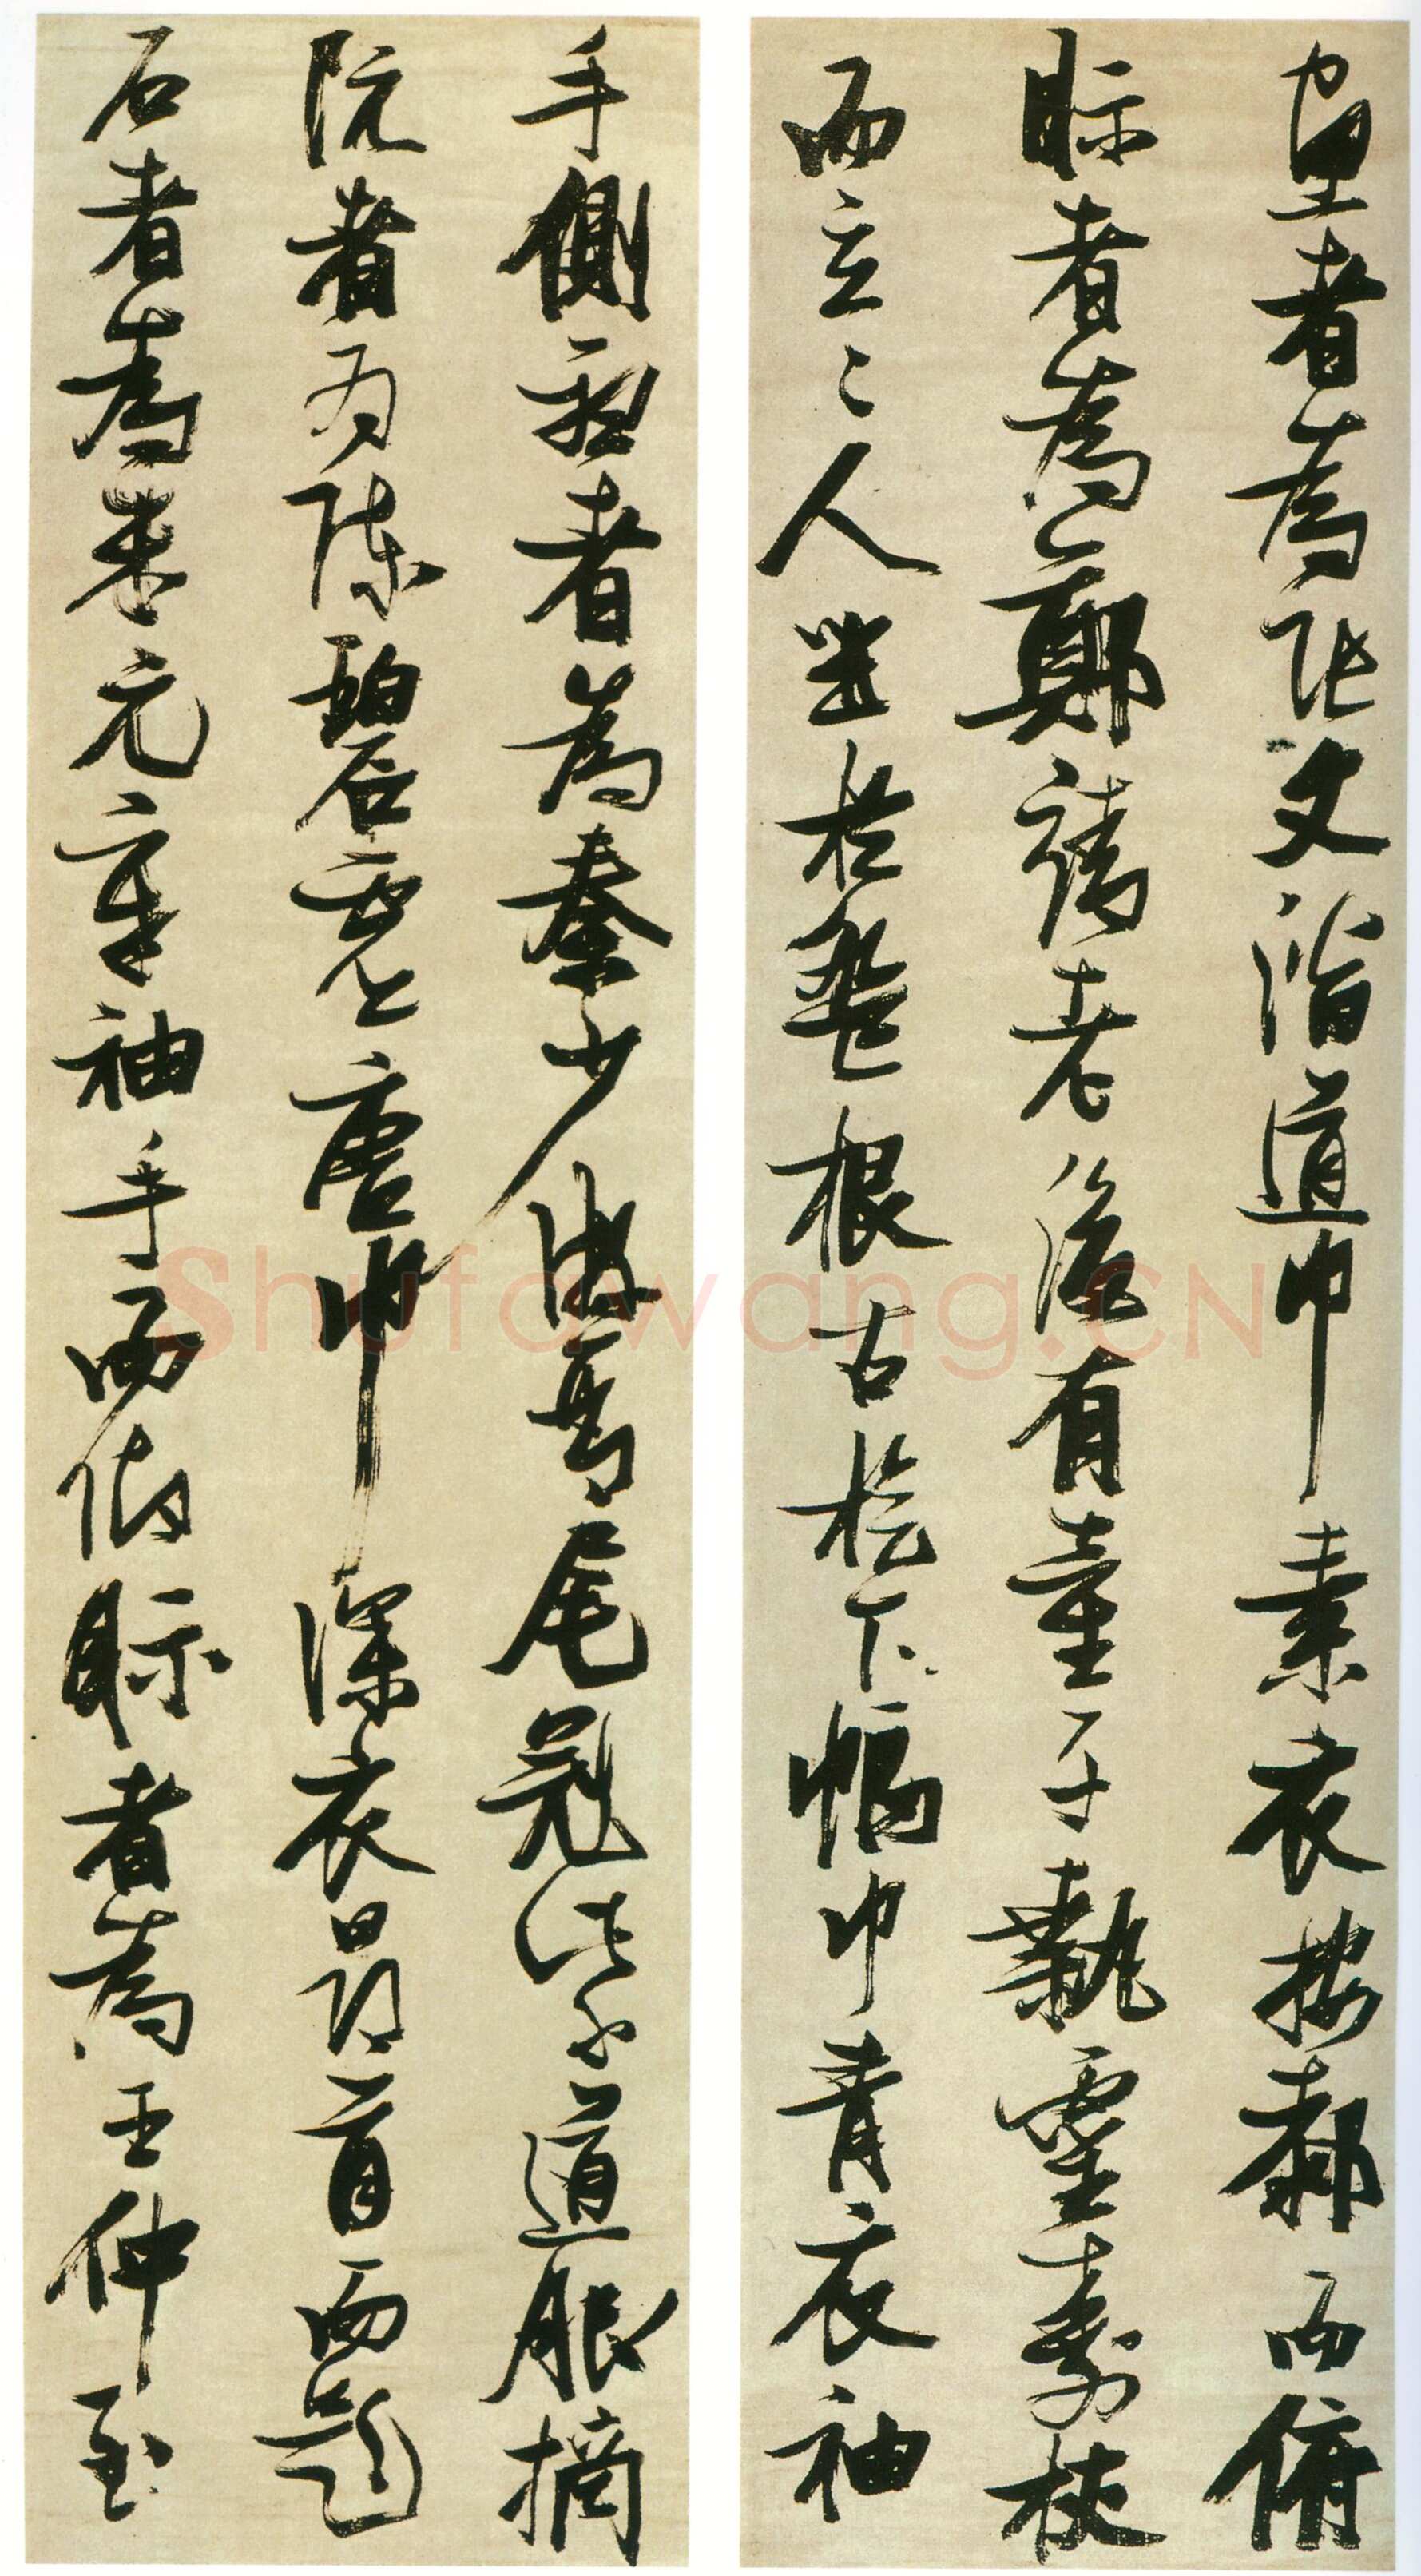 望者為張文潛道巾素衣按膝而俯
眎者為鄭靖老後有童子執靈壽杖
而立二人坐於盤根古檜下幅巾青衣袖
手側聽者為秦少游琴尾冠紫道服摘
阮者為陳碧虛唐巾深衣昂首而題
石者為米元章袖手而仰眎者為王仲至
Shufawang.CN